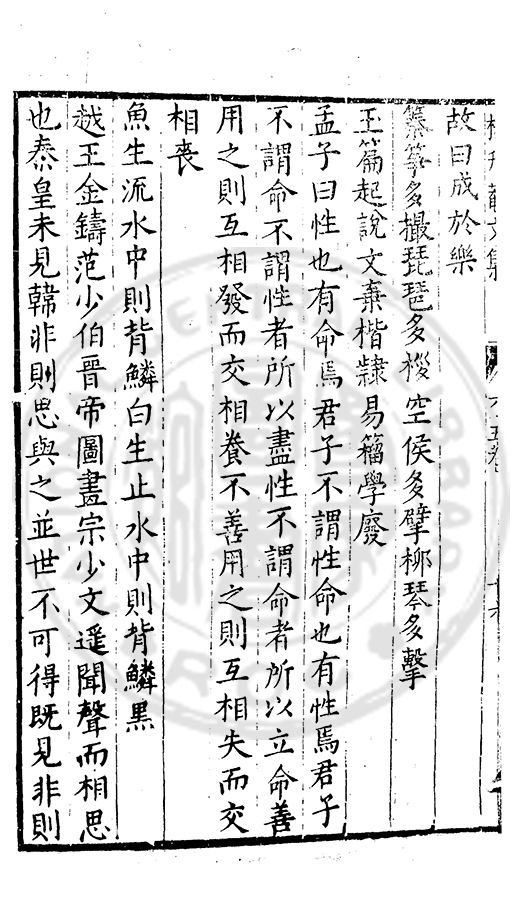 故曰成於樂
箏多撮琵琶多㮣空侯多擘柳琴多擊
玉篇起說文棄楷隸易籀學廢
孟子曰性也有命焉君子不謂性命也有性焉君子
不謂命不謂性者所以盡性不謂命者所以立命善
用之則互相發而交相養不善用之則互相失而交
相喪
魚生流水中則背鱗白生止水中則背鱗黑
越王金鑄范少伯晉帝圖畫宗少文遥聞聲而相思
也秦皇未見韓非則思與之並世不可得既見非則